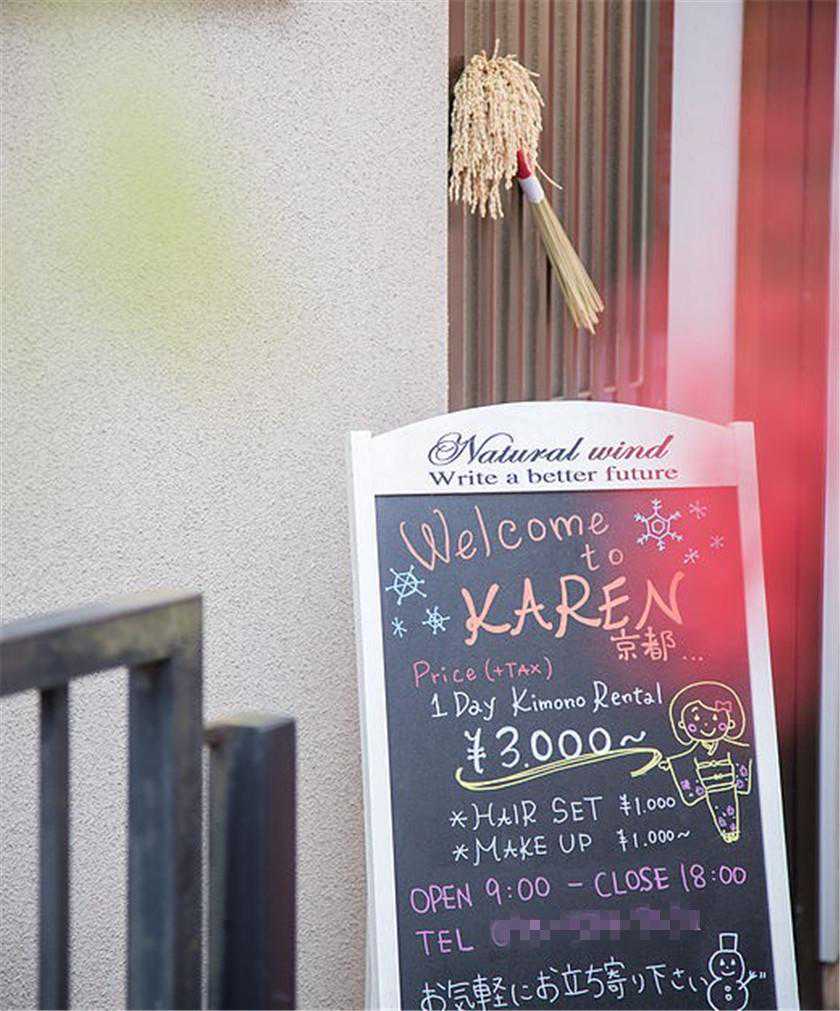 Natural wind
Write a better future
Welcome
to
KAREN
京都...
Price (+TAX)
1 Day Kimono Rental
¥3.000~
*HAIR SET ¥1.000
*MAKE UP ¥1.000~
OPEN 9:00 - CLOSE 18:00
TEL
お気軽にお立ち寄り下さい